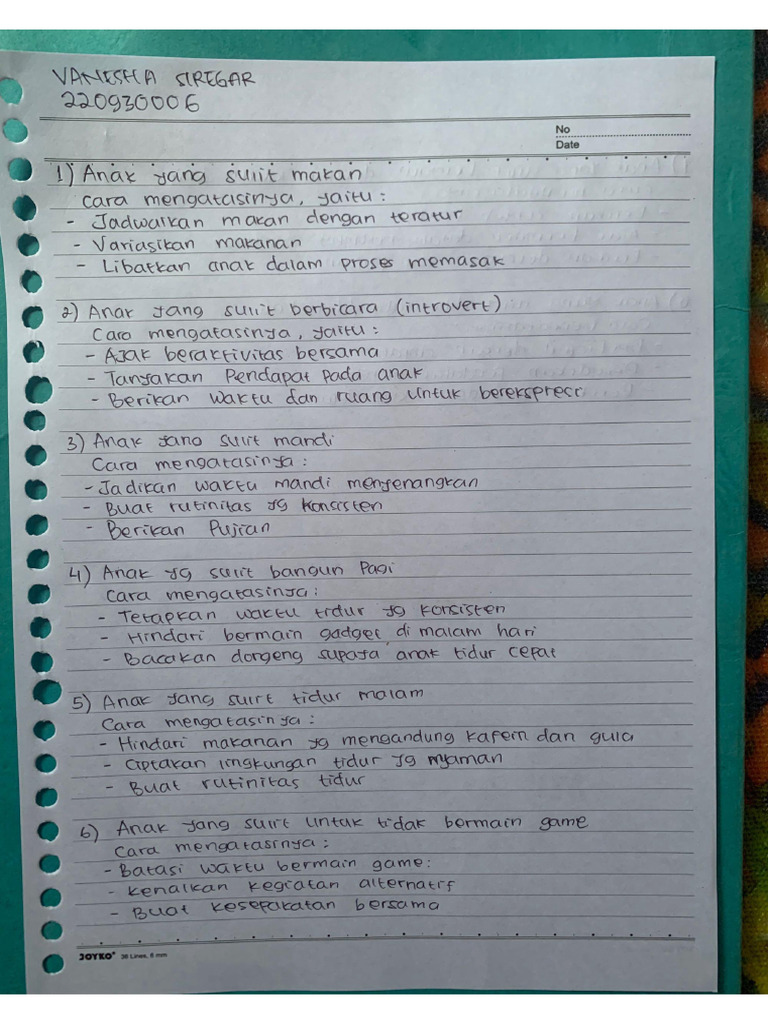 VANESHA SIREGAR
220930006
No
Date
1) Anak yang sulit makan
Cara mengatasinya, yaitu :
- Jadwalkan makan dengan teratur
- Variasikan makanan
- Libatkan anak dalam proses memasak
2) Anak yang sulit berbicara (introvert)
Cara mengatasinya, yaitu :
- Ajak beraktivitas bersama
- Tanyakan Pendapat pada anak
- Berikan waktu dan ruang untuk berekspresi
3) Anak yang sulit mandi
Cara mengatasinya :
- Jadikan waktu mandi menyenangkan
- Buat rutinitas yg konsisten
- Berikan Pujian
4) Anak yg sulit bangun Pagi
Cara mengatasinya :
- Tetapkan waktu tidur yg konsisten
- Hindari bermain gadget di malam hari
- Bacakan dongeng supaya anak tidur cepat
5) Anak yang sulit tidur malam
Cara mengatasinya :
- Hindari makanan yg mengandung kafein dan gula
- Ciptakan lingkungan tidur yg nyaman
- Buat rutinitas tidur
6) Anak yang sulit untuk tidak bermain game
Cara mengatasinya :
- Batasi waktu bermain game :
- Kenalkan kegiatan alternatif
- Buat kesepakatan bersama
JOYKO 36 Lines, 8 mm